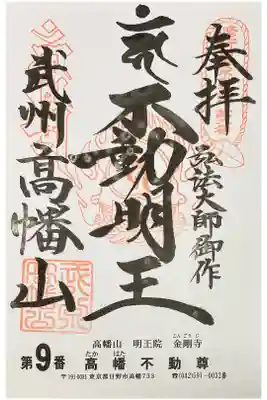 奉拝
弘法大師御作
不動明王
武州高幡山
高幡山 明王院 金剛寺
こんごうじ
第9番 高幡不動尊
たか はた
〒191-0031 東京都日野市高幡733
☎(042)591-0032番